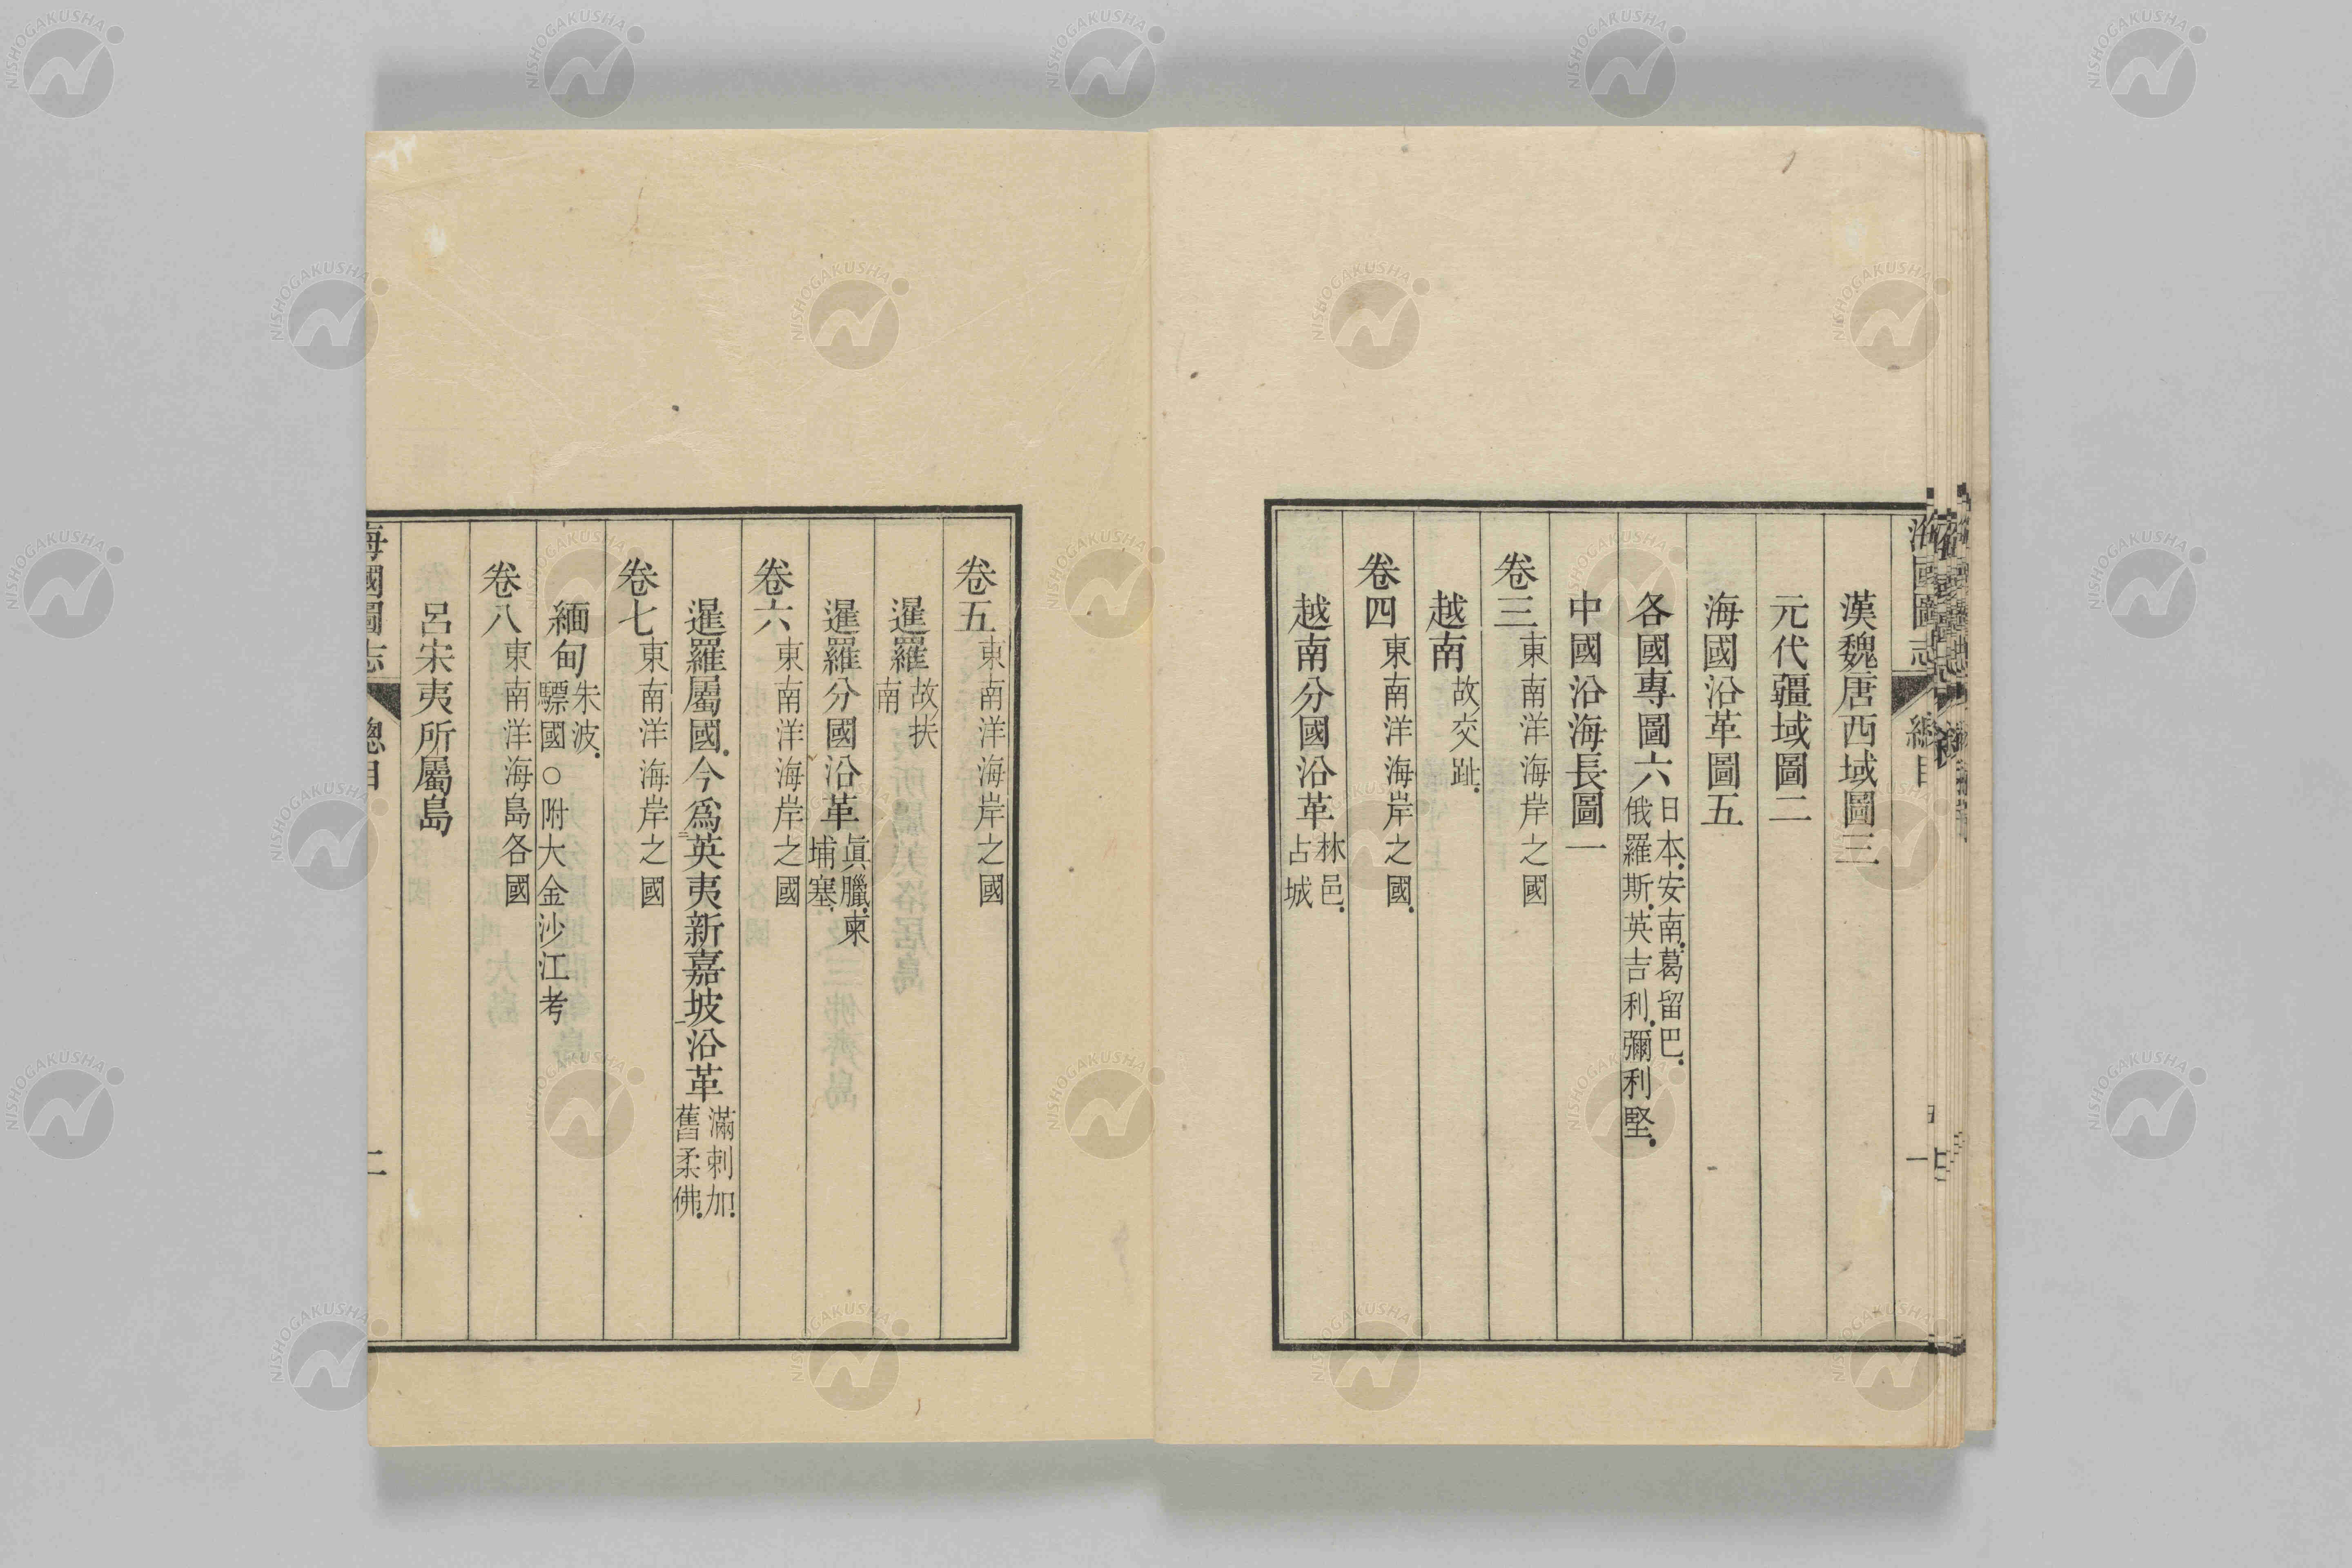 海國圖志 總目 一
漢魏唐西域圖三
元代疆域圖二
海國沿革圖五
各國專圖六 日本安南葛留巴
俄羅斯英吉利彌利堅
中國沿海長圖一
卷三 東南洋海岸之國
越南 故交趾
卷四 東南洋海岸之國
越南分國沿革 林邑
占城
卷五 東南洋海岸之國
暹羅 故扶
南
暹羅分國沿革 眞臘柬
埔寨
卷六 東南洋海岸之國
暹羅屬國今爲英夷新嘉坡沿革 滿剌加
舊柔佛
卷七 東南洋海岸之國
緬甸 朱波
驃國○附大金沙江考
卷八 東南洋海島各國
呂宋夷所屬島
海國圖志 總目 二
NISHOGAKUSHA